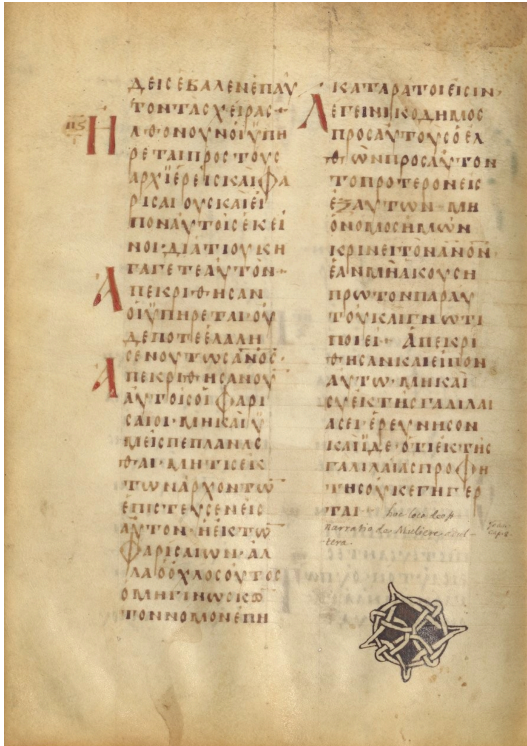 ΔΕΙΣΕΒΑΛΕΝΕΠΑΥ
ΤΟΝΤΑΣΧΕΙΡΑΣ·
ΗΛΘΟΝΟΥΝΟΙΫΠΗ
ΡΕΤΑΙΠΡΟΣΤΟΥΣ
ΑΡΧΙΕΡΕΙΣΚΑΙΦΑ
ΡΙΣΑΙΟΥΣΚΑΙΕΙ
ΠΟΝΑΥΤΟΙΣΕΚΕΙ
ΝΟΙ·ΔΙΑΤΙΟΥΚΗ
ΓΑΓΕΤΕΑΥΤΟΝ·
ΑΠΕΚΡΙΘΗΣΑΝ
ΟΙΫΠΗΡΕΤΑΙ·ΟΥ
ΔΕΠΟΤΕΕΛΑΛΗ
ΣΕΝΟΥΤΩΣΑΝΟΣ·
ΑΠΕΚΡΙΘΗΣΑΝΟΥ
ΑΥΤΟΙΣΟΙΦΑΡΙ
ΣΑΙΟΙ·ΜΗΚΑΙΫ
ΜΕΙΣΠΕΠΛΑΝΑΣ
ΘΑΙ·ΜΗΤΙΣΕΚ
ΤΩΝΑΡΧΟΝΤΩ
ΕΠΙΣΤΕΥΣΕΝΕΙΣ
ΑΥΤΟΝ·ΗΕΚΤΩ
ΦΑΡΙΣΑΙΩΝ·ΑΛ
ΛΑΟΟΧΛΟΣΟΥΤΟΣ
ΟΜΗΓΙΝΩΣΚΩ
ΤΟΝΝΟΜΟΝΕΠΗ
ΚΑΤΑΡΑΤΟΙΕΙΣΙΝ·
ΛΕΓΕΙΝΙΚΟΔΗΜΟΣ
ΠΡΟΣΑΥΤΟΥΣΟΕΛ
ΘΩΝΠΡΟΣΑΥΤΟΝ
ΤΟΠΡΟΤΕΡΟΝΕΙΣ
ΕΞΑΥΤΩΝ·ΜΗ
ΟΝΟΜΟΣΗΜΩΝ
ΚΡΙΝΕΙΤΟΝΑΝΟΝ·
ΕΑΝΜΗΑΚΟΥΣΗ
ΠΡΩΤΟΝΠΑΡΑΥ
ΤΟΥΚΑΙΓΝΩΤΙ
ΠΟΙΕΙ·ΑΠΕΚΡΙ
ΘΗΣΑΝΚΑΙΕΙΠΟΝ
ΑΥΤΩ·ΜΗΚΑΙ
ΣΥΕΚΤΗΣΓΑΛΙΛΑΙ
ΑΣΕΙ·ΕΡΕΥΝΗΣΟΝ
ΚΑΙΪΔΕ·ΟΤΙΕΚΤΗΣ
ΓΑΛΙΛΑΙΑΣΠΡΟΦΗ
ΤΗΣΟΥΚΕΓΗΓΕΡ
ΤΑΙ· hoc loco deest
narratio de Muliere adul-
tera.